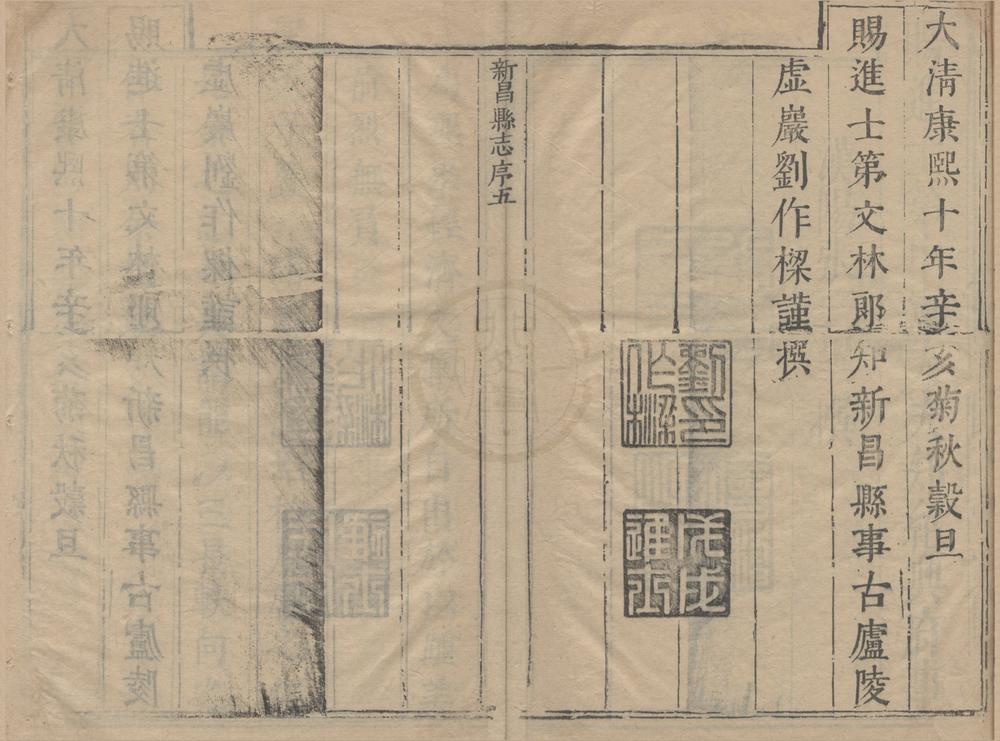 大清康熙十年辛亥菊秋穀旦
賜進士第文林郎知新昌縣事古廬陵
虛巖劉作樑謹撰
劉印作樑
戊戌進士
新昌縣志序五